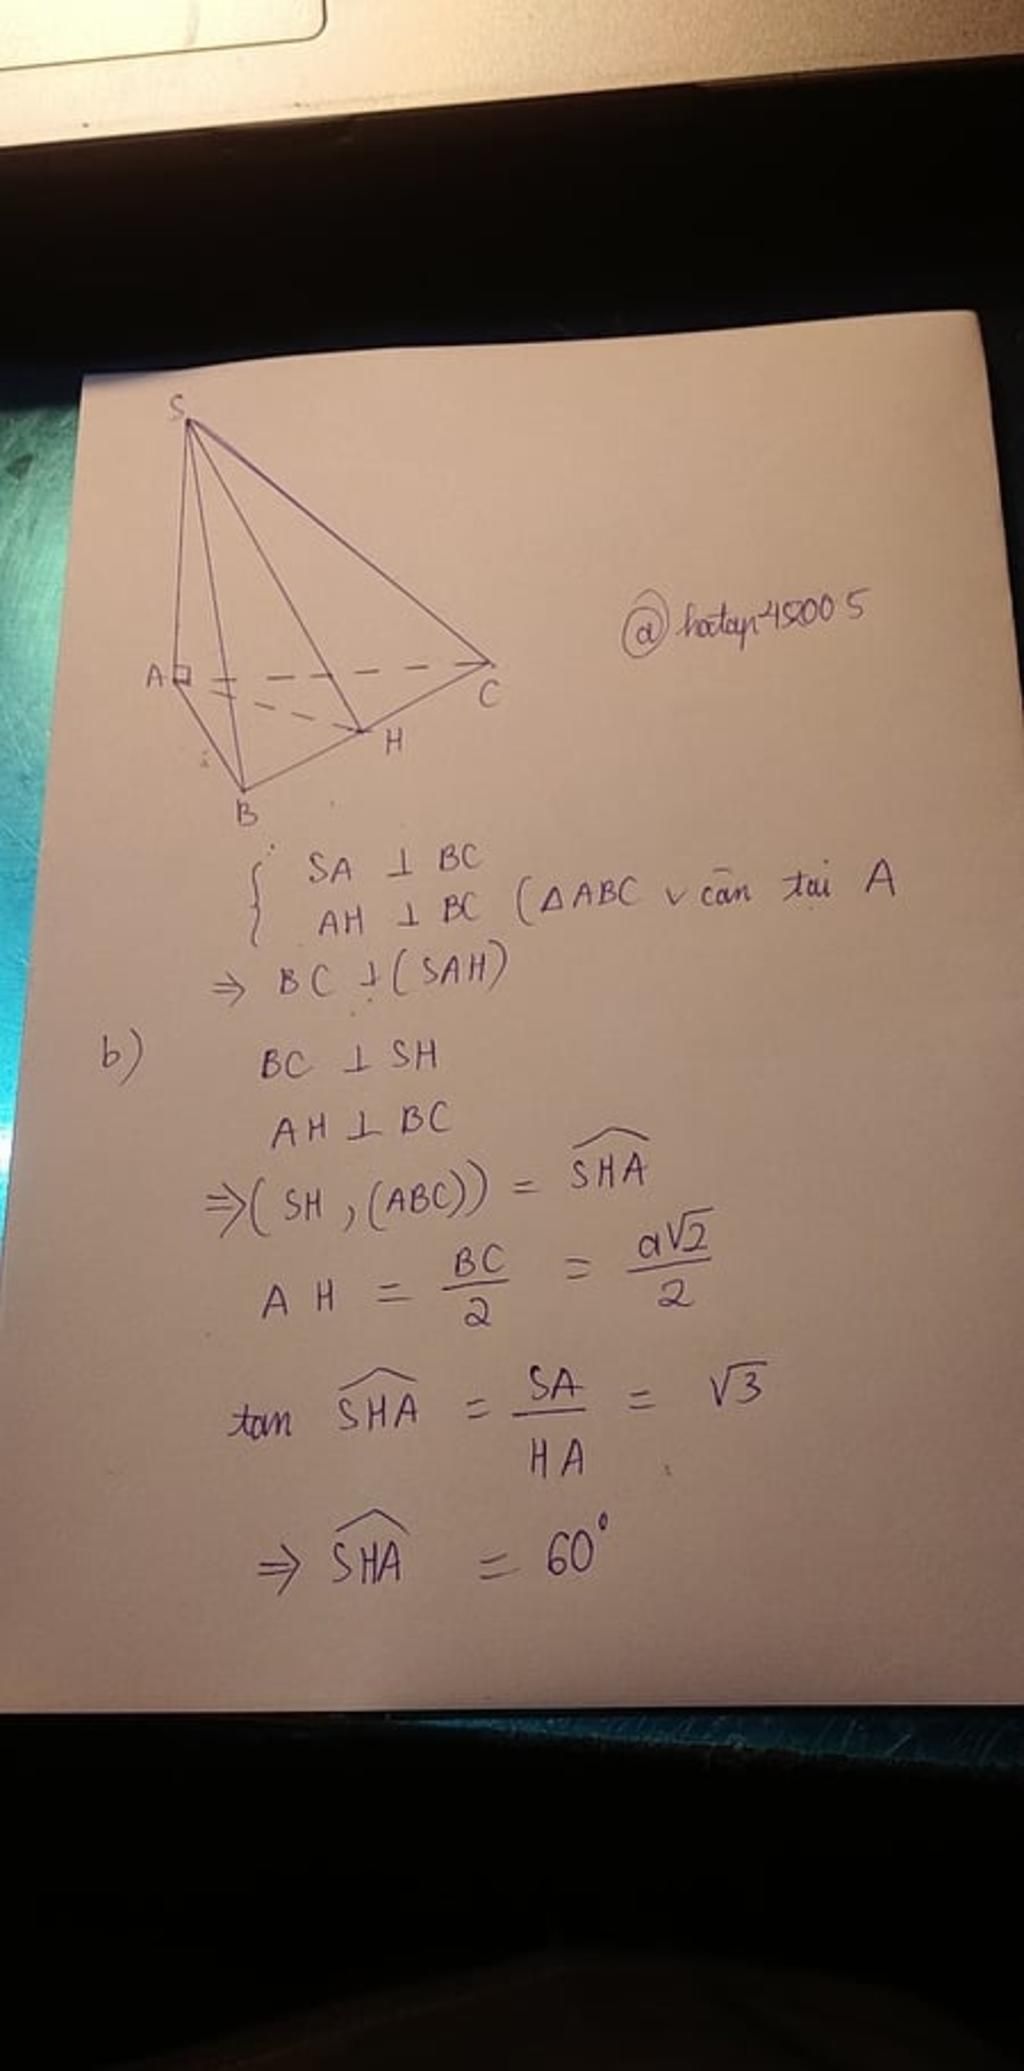 S
A
C
H
B
SA ⊥ BC
AH ⊥ BC (ΔABC v cân tại A
⇒ BC ⊥ (SAH)
b) BC ⊥ SH
AH ⊥ BC
⇒ (SH, (ABC)) = \widehat{SHA}
AH = BC/2 = a√2/2
tan \widehat{SHA} = SA/HA = √3
⇒ \widehat{SHA} = 60°